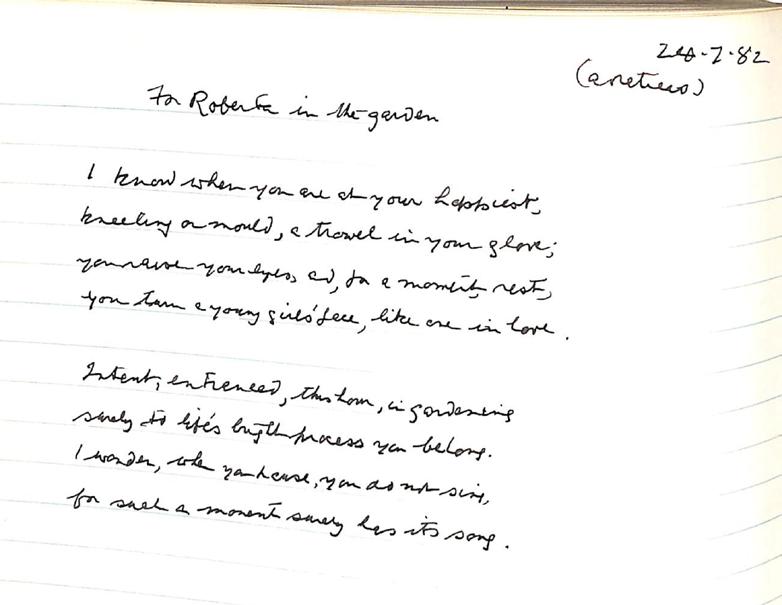 For Roberta in the garden
I know when you are at your happiest,
kneeling on mould, a trowel in your glove;
you raise your eyes, and, for a moment, rest,
you turn a young girl's face, like one in love.
Intent, entranced, this hour, in gardening
surely to life's bright process you belong.
I wonder, when you pause, you do not sing,
for such a moment surely has its song.